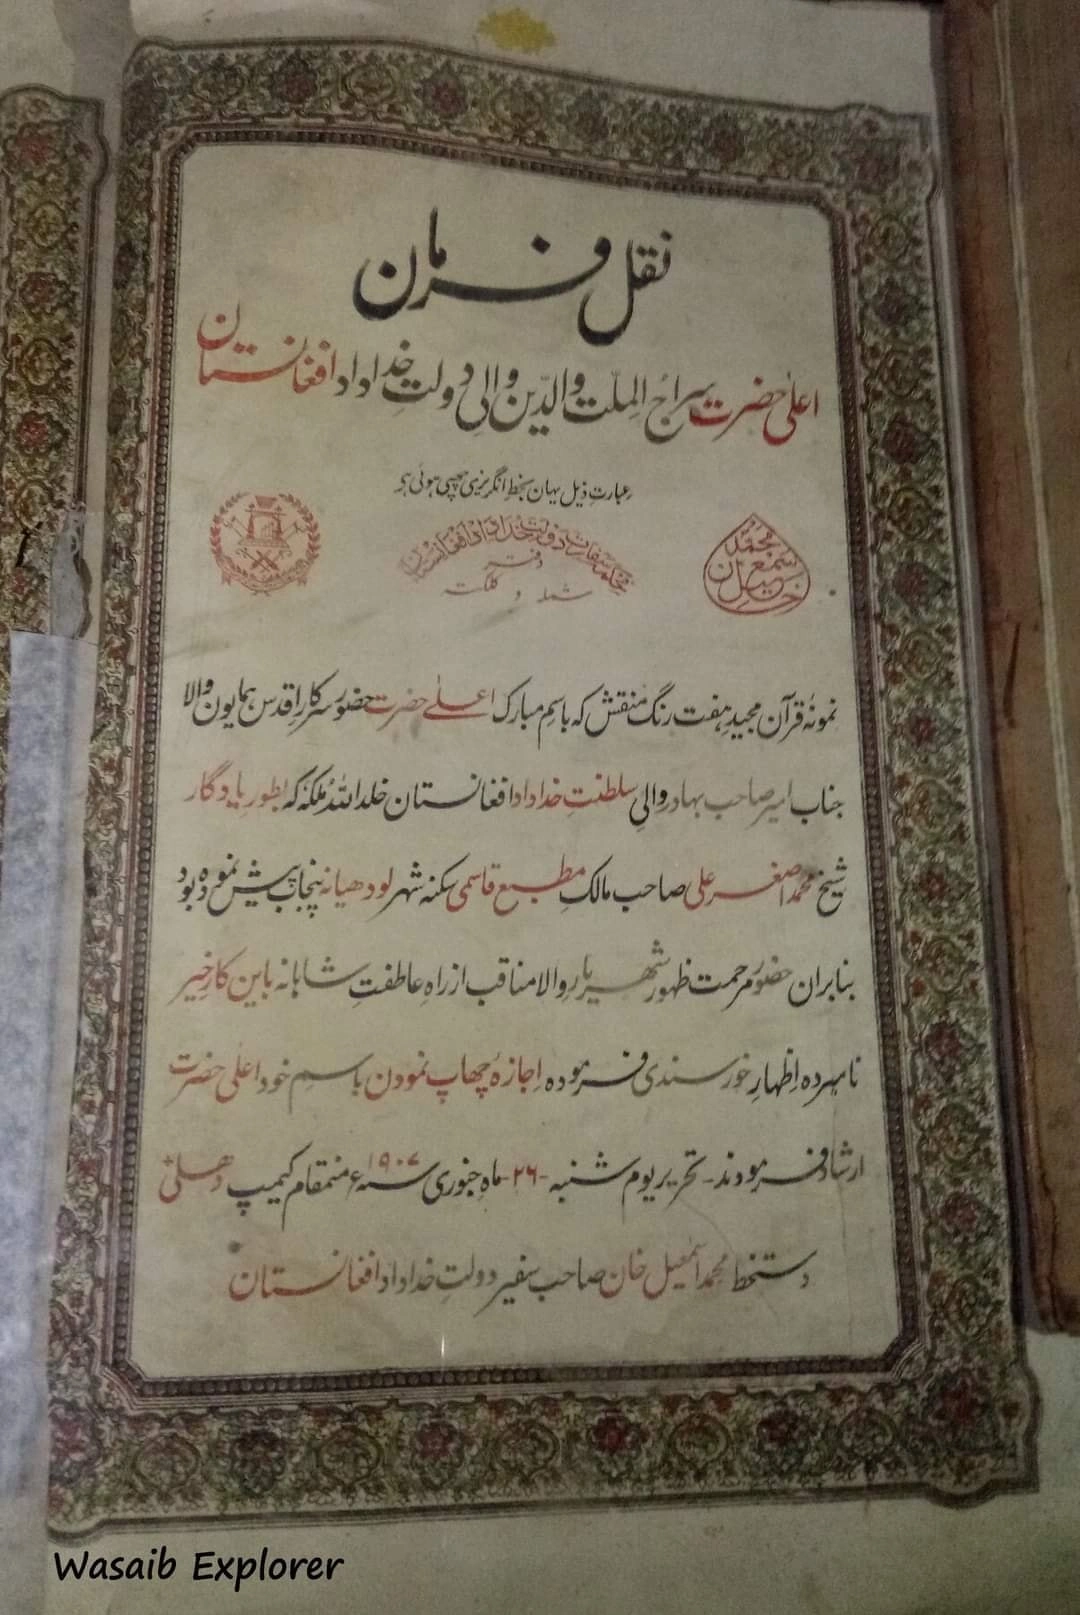 نقل فرمان
اعلیٰ حضرت سراج الملّت والدّین والی دولتِ خداداد افغانستان
عبارتِ ذیل یہان بخطِ انگریزی چھپی ہوئی ہے
محکمہ سفارت دولت خداداد افغانستان
دفتر
شملہ و کلکتہ
محمد اسمعیل خان
نمونۂ قرآن مجید ہفت رنگ منقش کہ باسمِ مبارک اعلےٰ حضرت حضور سرکارِ اقدس ہمایون والا
جناب امیر صاحب بہادر والیِ سلطنتِ خداداد افغانستان خلد اللہُ ملکہٗ کہ بطورِ یادگار
شیخ محمد اصغر علی صاحب مالکِ مطبع قاسمی سکنہ شہر لودھیانہ پنجاب پیش نمودہ بود
بنابران حضورِ مرحمت ظہور شہریارِ والا مناقب از راہِ عاطفتِ شاہانہ باین کارِ خیر
نامبردہ اِظہارِ خورسندی فرمودہ اِجازۂ چھاپ نمودن باسمِ خود اعلیٰ حضرت
ارشاد فرمودند - تحریر یوم شنبہ - ۲۶ - ماہ جنوری سنہ ۱۹۰۷ء مقام کیمپ دھلی
دستخط محمد اسمٰعیل خان صاحب سفیر دولتِ خداداد افغانستان
Wasaib Explorer